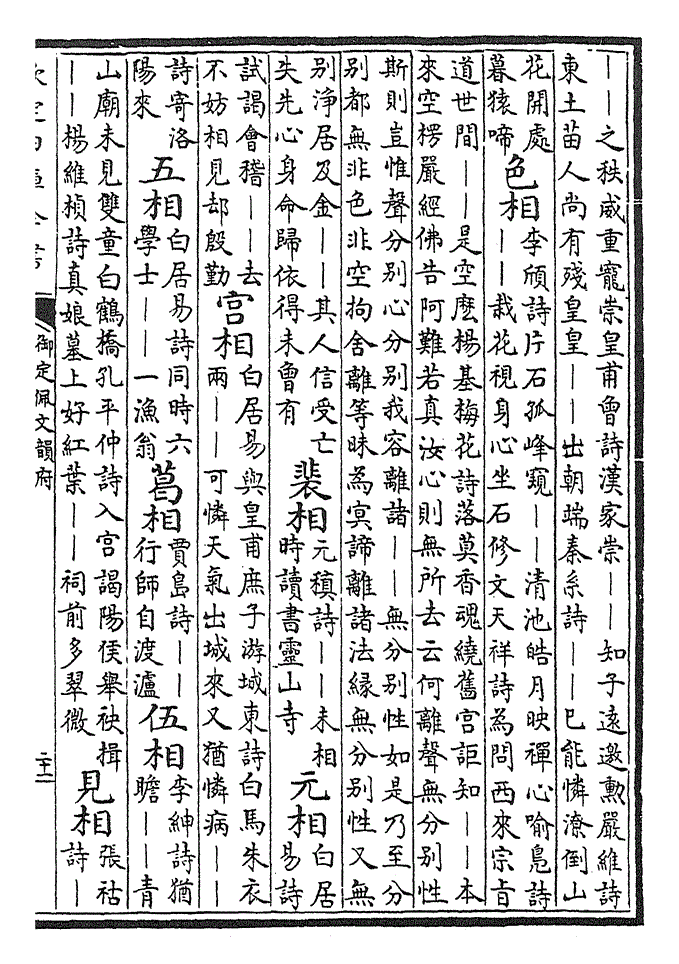 ——之秩咸重寵崇皇甫曾詩漢家崇——知子遠邀勲嚴維詩
東土苗人尚有殘皇皇——出朝端秦系詩——已能憐潦倒山
花開處
暮猿啼
色相
李頎詩片石孤峰窺——清池皓月映禪心喻鳬詩
——栽花視身心坐石修文天祥詩為問西來宗旨
道世間——是空麽楊基梅花詩落莫香魂繞舊宫詎知——本
來空楞嚴經佛告阿難若真汝心則無所去云何離聲無分别性
斯則豈惟聲分别心分别我容離諸——無分别性如是乃至分
别都無非色非空拘舍離等昧為㝠諦離諸法縁無分别性又無
别浄居及金——其人信受亡
失先心身命歸依得未曾有
裴相
元稹詩——未相
時讀書靈山寺
元相
白居
易詩
試謁會稽——去
不妨相見却殷勤
宫相
白居易與皇甫庶子游城東詩白馬朱衣
兩——可憐天氣出城來又猶憐病——
詩寄洛
陽來
五相
白居易詩同時六
學士——一漁翁
葛相
賈島詩——
行師自渡瀘
伍相
李紳詩猶
瞻——青
山廟未見雙童白鶴橋孔平仲詩入宫謁陽侯舉袂揖
——楊維楨詩真娘墓上好紅葉——祠前多翠微
見相
張祜
詩—
欽定四庫全書
御定佩文韻府
二十二